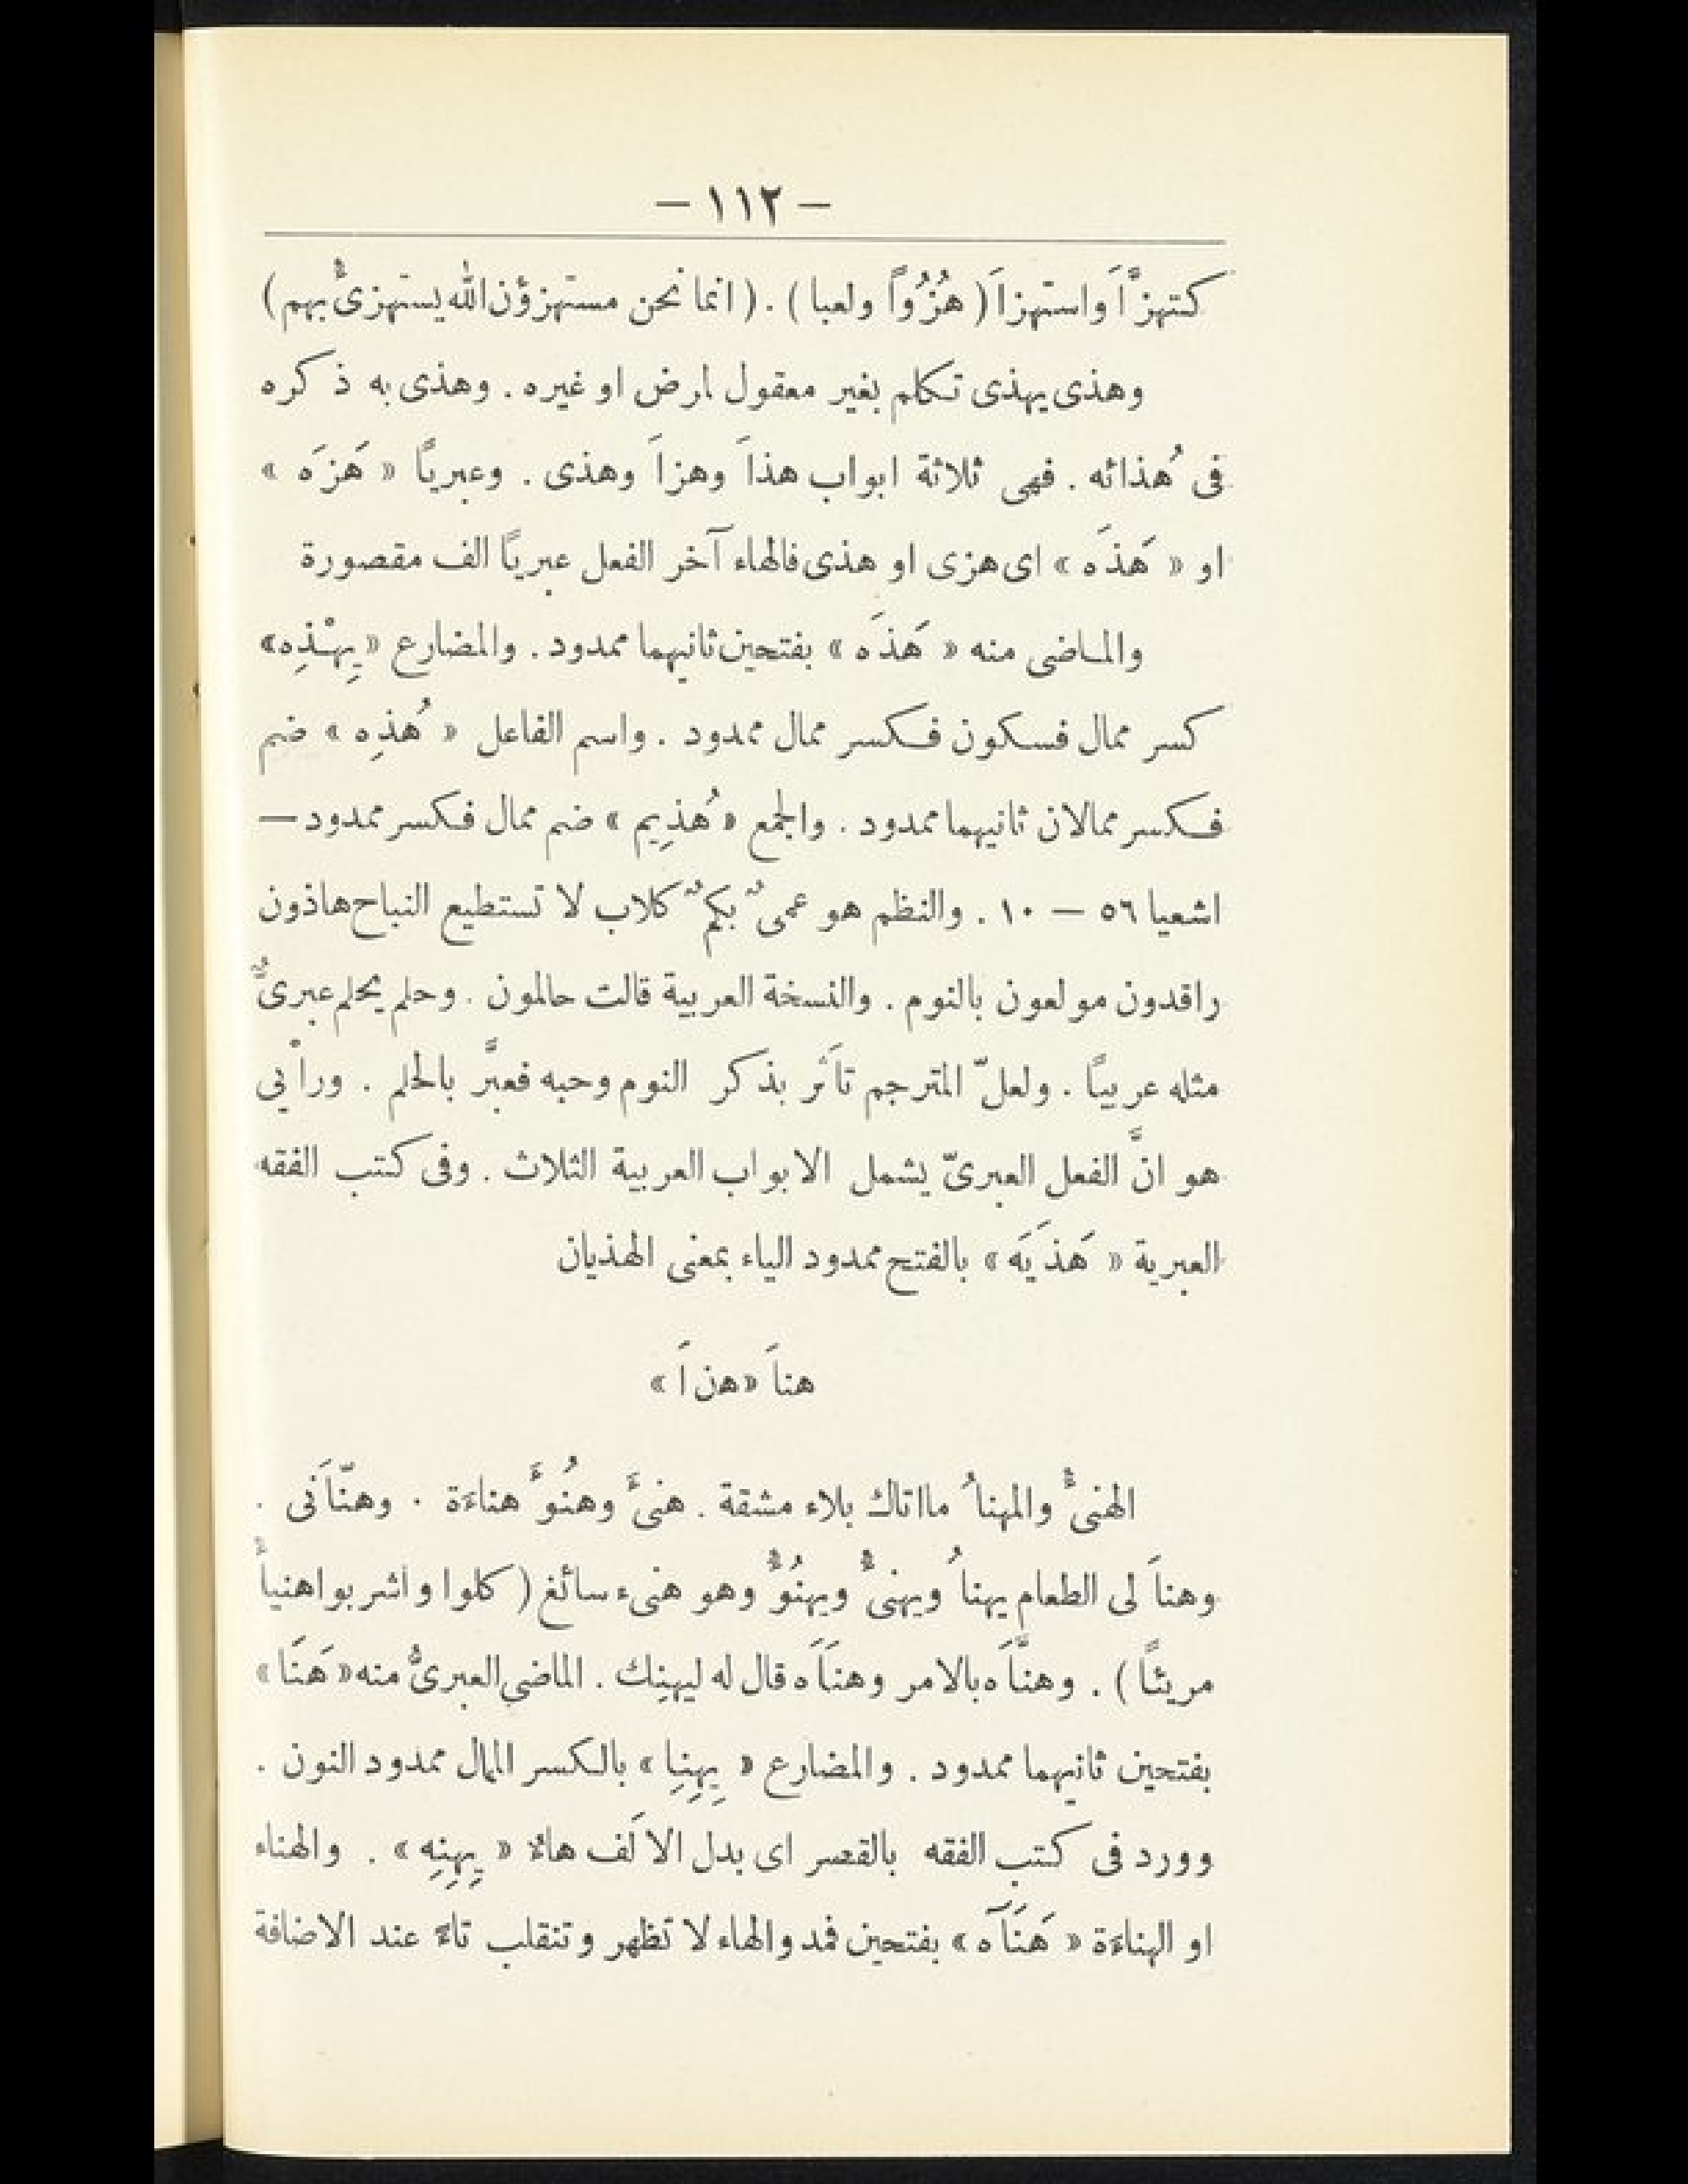 — ١١٢ —
كتهزَّأَ واستهزأَ ( هُزُوًا ولعبا ) . ( انما نحن مستهزؤن الله يستهزئُ بهم )
وهذى يهذى تكلم بغير معقول لمرض او غيره . وهذى به ذكره
فى هُذائه . فهى ثلاثة ابواب هذأَ وهزأَ وهذى . وعبريًا « هَزَه »
او « هَذَه » اى هزى او هذى فالهاء آخر الفعل عبريًا الف مقصورة
والمـاضى منه « هَذَه » بفتحين ثانيهما ممدود . والمضارع « يِهْذِه »
كسر ممال فسكون فـكسر ممال ممدود . واسم الفاعل « هُذِه » ضم
فـكسر ممالان ثانيهما ممدود . والجمع « هُذِيم » ضم ممال فـكسر ممدود —
اشعيا ٥٦ — ١٠ . والنظم هو عمىٌ بكمٌ كلاب لا تستطيع النباح هاذون
راقدون مولعون بالنوم . والنسخة العربية قالت حالمون . وحلم يحلم عبرىٌّ
مثله عربيًا . ولعلّ المترجم تأثَر بذكر النوم وحبه فعبَّر بالحلم . ورأيي
هو انَّ الفعل العبرىّ يشمل الابواب العربية الثلاث . وفى كتب الفقه
العبرية « هَذَيَه » بالفتح ممدود الياء بمعنى الهذيان
هنأَ « هن أَ »
الهنئُ والمهنأُ مااتاك بلاء مشقة . هنئَ وهنُوءَ هناءَة . وهنّأَنى .
وهنأَ لى الطعام يهنأُ ويهنئُ ويهنُؤُ وهو هنىء سائغ ( كلوا واشربواهنيأً
مريئًا ) . وهنَّأَه بالامر وهنَأَه قال له ليهنِك . الماضي العبرىُّ منه « هَنَا »
بفتحين ثانيهما ممدود . والمضارع « يِهِنِا » بالكسر الممال ممدود النون .
وورد فى كتب الفقه بالقصر اى بدل الالَف هاءً « يِهِنِه » . والهناء
او الهناءَة « هَنَأَه » بفتحين فمد والهاء لا تظهر وتنقلب تاءً عند الاضافة